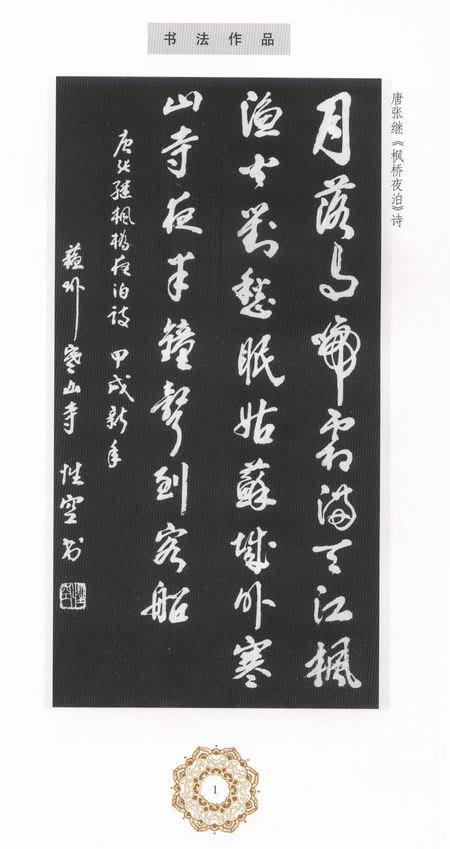 书法作品
唐张继《枫桥夜泊》诗
月落乌啼霜满天江枫
渔火对愁眠姑蘇城外寒
山寺夜半鐘聲到客船
唐张继枫桥夜泊诗 甲戌新年
蘇州寒山寺 性空书
1